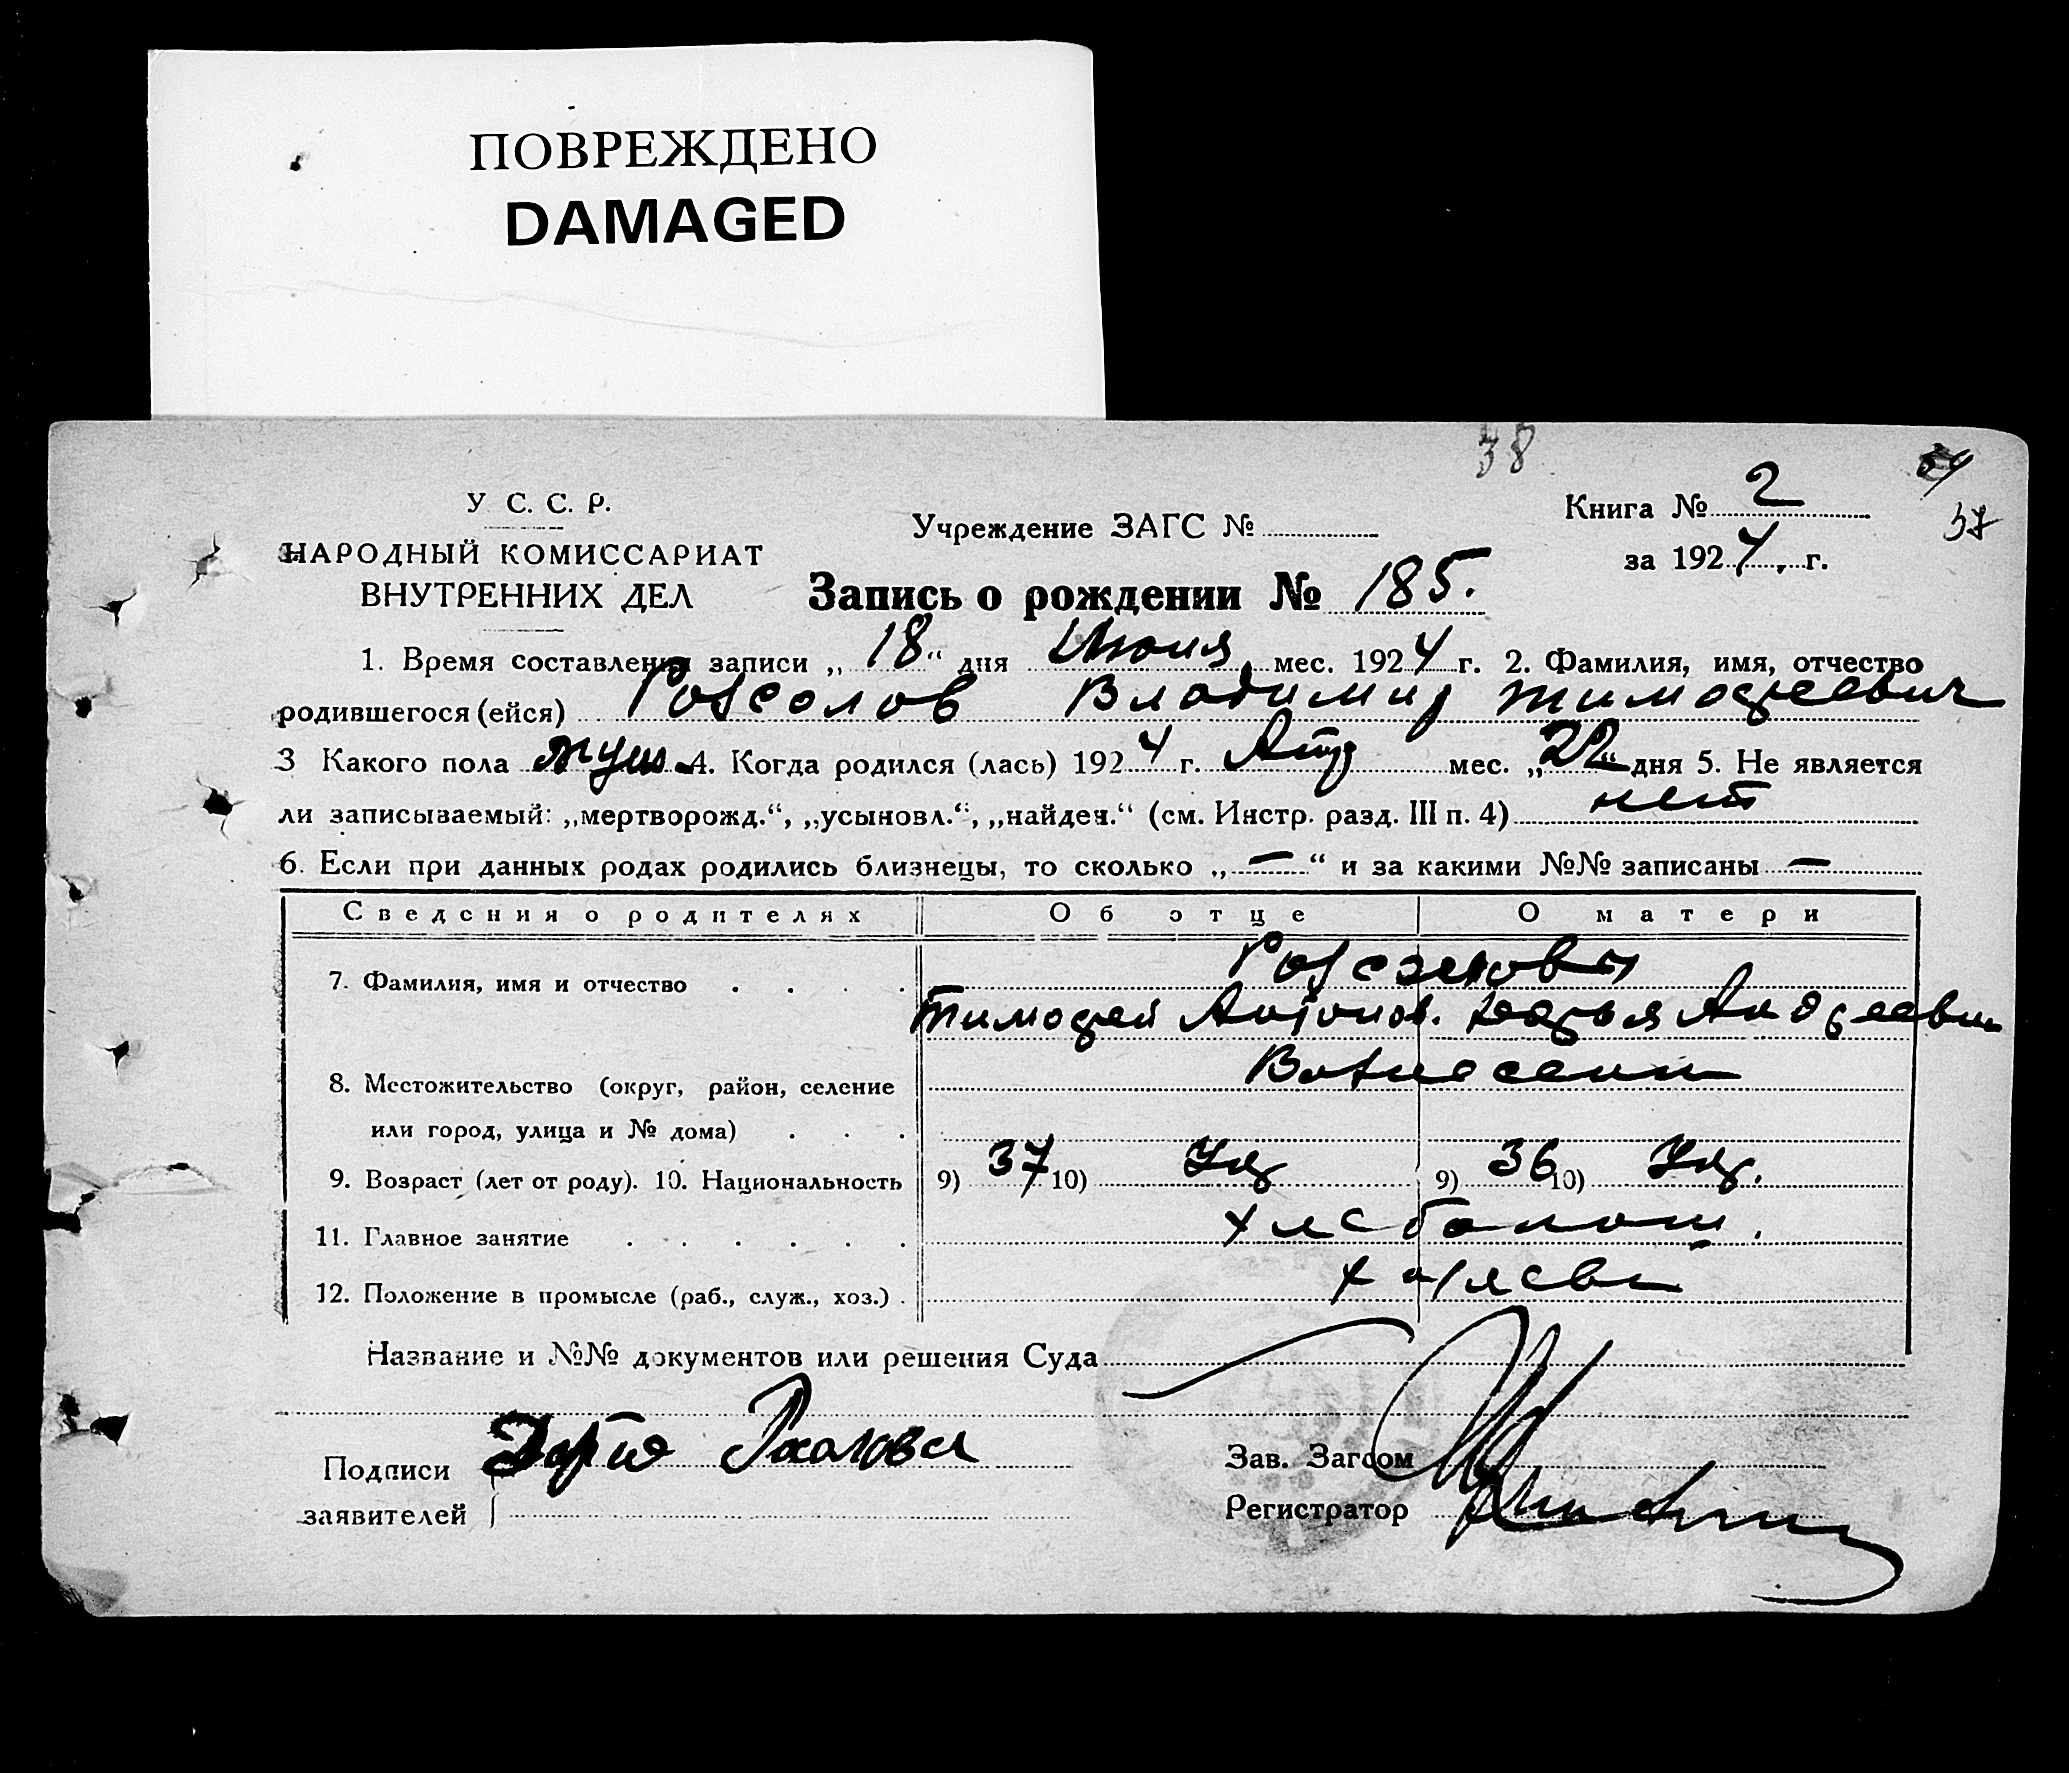 ПОВРЕЖДЕНО
DAMAGED
38
54
У С. С. Р.
Книга № 2
37
Учреждение ЗАГС №
НАРОДНЫЙ КОМИССАРИАТ
за 1924 г.
ВНУТРЕННИХ ДЕЛ
Запись о рождении № 185.
1. Время составления записи „18“ дня Июня мес. 1924 г. 2. Фамилия, имя, отчество
родившегося (ейся) Владимир Тимофеевич
3 Какого пола муш 4. Когда родился (лась) 1924 г. мес. „22“ дня 5. Не является
ли записываемый: „мертворожд.“, „усыновл.“, „найден.“ (см. Инстр. разд. III п. 4) нет
6. Если при данных родах родились близнецы, то сколько „—“ и за какими №№ записаны —
Сведения о родителях Об отце О матери
7. Фамилия, имя и отчество . . . .
Тимофей Антонов. Дарья Андреевн
8. Местожительство (округ, район, селение
или город, улица и № дома) . . .
9. Возраст (лет от роду). 10. Национальность 9) 37 10) Укр 9) 36 10) Укр.
11. Главное занятие . . . . . .
12. Положение в промысле (раб., служ., хоз.) .
Название и №№ документов или решения Суда
Подписи Дария
Зав. Загсом
заявителей
Регистратор